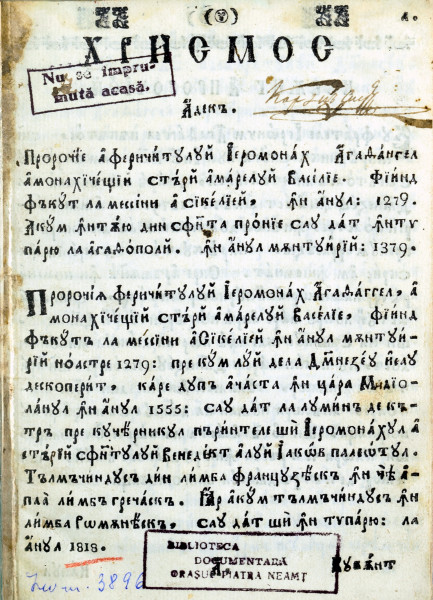 (V)
ХРИСМОС
Nu se împru-
mută acasă.
Адекъ.
Пророчіе а феричитꙋлꙋй Іеромонах Агаѳангел
а монахичещій стѣрй а марелꙋй Василіе. фіинд
фъкꙋт ла Мессіни а Сікеліей, ꙟн анꙋл: 1279.
Акꙋм ꙟнтѫю дин сфѫнта проніе с'аꙋ дат ꙟнти
парю ла Агаѳополи. ꙟн анꙋл мѫнтꙋирій: 1379.
Пророчіѧ феричитꙋлꙋй Іеромонах Агаѳаггел, а
монахичещій стѣрй а марелꙋй Васеліе, фіинд
фъкꙋтъ ла Мессіни а Сікеліей ꙟн анꙋл мѫнтꙋи-
рій ноастре 1279: прекꙋм лꙋй дела Дмнезеꙋ йсаꙋ
дескоперит, каре дꙋпъ ачаста ꙟн цара Мидіо-
ланꙋл ꙟн анꙋл 1555: саꙋ дат ла лꙋминъ де къ-
тръ пре кꙋчерникꙋл пъринтеле ши Іеромонахꙋл а
стѣрій сфѫнтꙋлꙋй Венедект алꙋй Іакѡв палеотꙋл.
Тълмъчиндꙋсъ дин лимба францꙋзѣскъ ꙟн чѣ а-
плаа лимбъ гречаскъ. Іар акꙋм тълмъчиндꙋсъ ꙟн
лимба Рꙋмѫнѣскъ, саꙋ дат ши ꙟн типарю: ла
анꙋл 1818.
BIBLIOTECA
DOCUMENTARĂ
ORAȘUL PIATRA NEAMȚ
Кꙋвѫнт
Inv. 3896